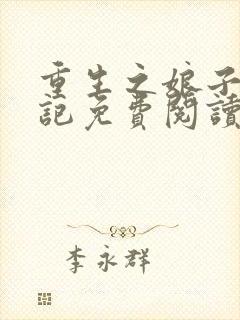 重生之娘子
記免費閱讀
李永群